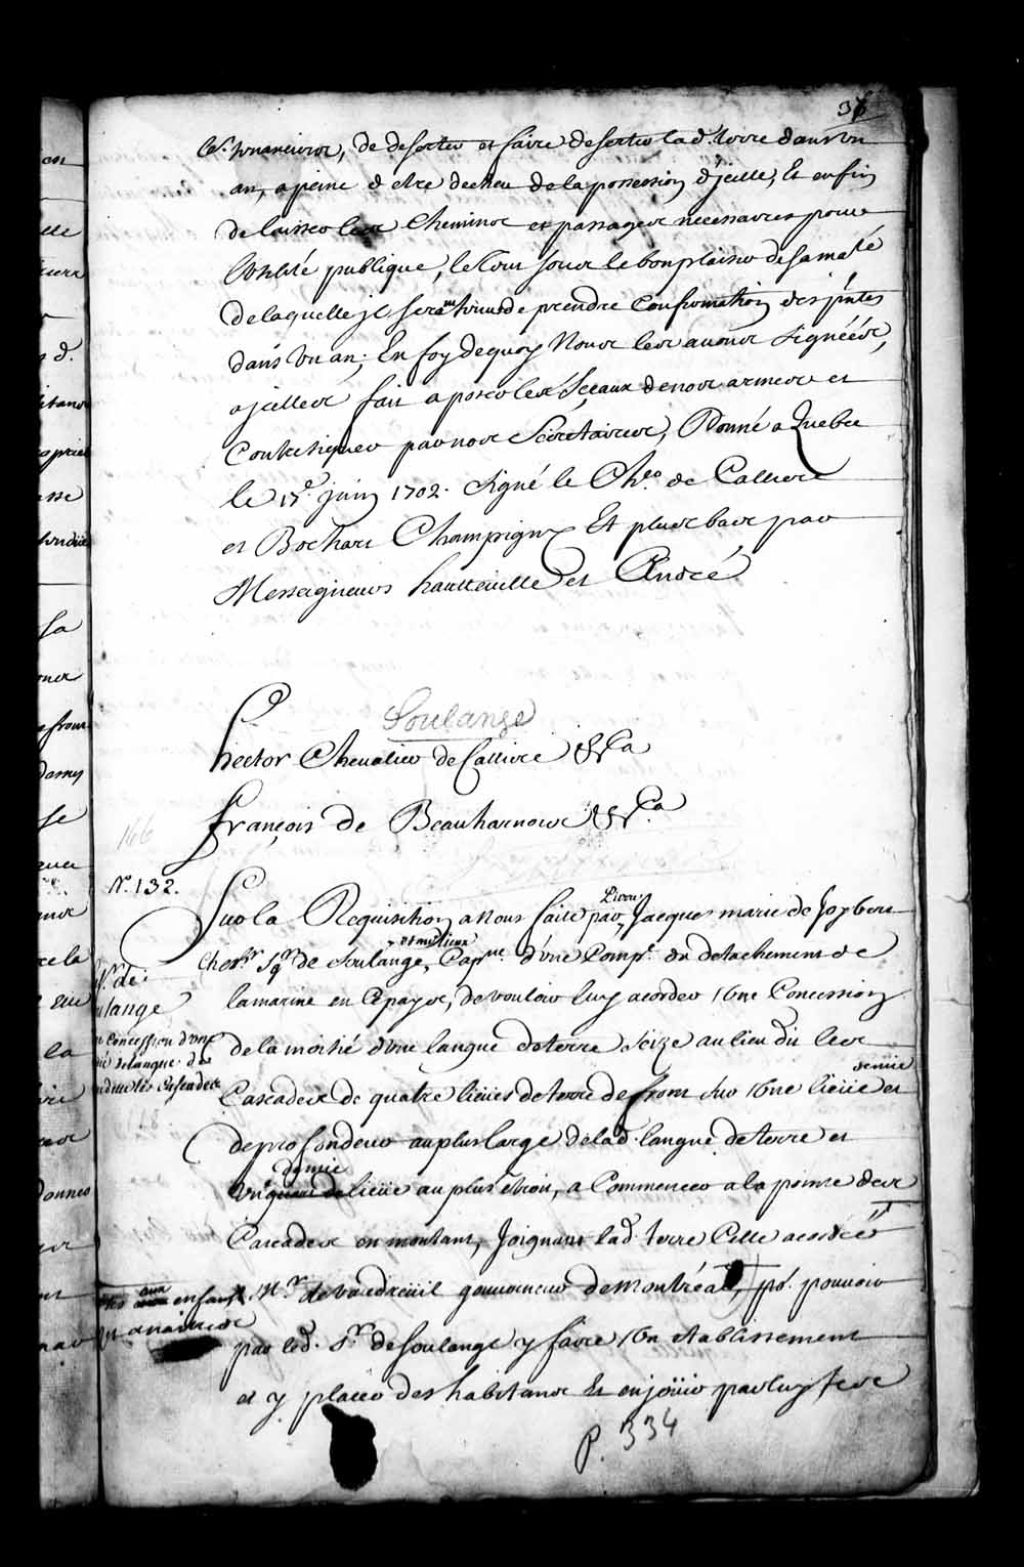 37
les tenanciers, de deserter et faire deserter lad. terre dans un
an, a peine d'etre decheu de la possession d'jcelle, Et enfin
de laisser les Chemins et passages necessaires pour
l'utilité publique, le tout sous le bon plaisir de sa maté
de laquelle jl sera tenu de prendre Confirmation des pntes
dans un an; En foy de quoy Nous les avons signéés,
a jcelles fait aposer les Sceaux de nos armes et
Contresigner par nos Sécrétaires, Donné a Quebec
le 17e. juin 1702. Signé le Cher. de Calliere
et Bochart Champigny Et plus bas par
Messeigneurs hautteville et André
Soulange
hector Chevalier de Calliere &Ca
françois de Beauharnois &Ca
166
No. 132.
Sur la Requisition a Nous faite par Pierre Jacques marie de Joybert
Chevr. Sgr de Soulange, et autres lieux Capne. d'une Compe. du detachement de
la marine en Ce pays, de vouloir luy acorder Une Concession
de la moitié d'une langue de terre size au lieu dit les
Cascades de quatre lieues de terre de front sur Une lieüe et demie
de profondeur au plus large de lad. langue de terre et
Une demie lieüe au plus étroit, a Commencer a la pointe des
Cascades en montant, Joignant lad. terre Celle acordéé
aux enfans Mr. de vaudreüil gouverneur de Montréal, po. pouvoir
par led. Sr. de Soulange y faire Un etablissement
et y placer des habitans Et en joüir par luy ses
Sr. de
ulange
Concession d'une
langue de
Cascades
P. 334